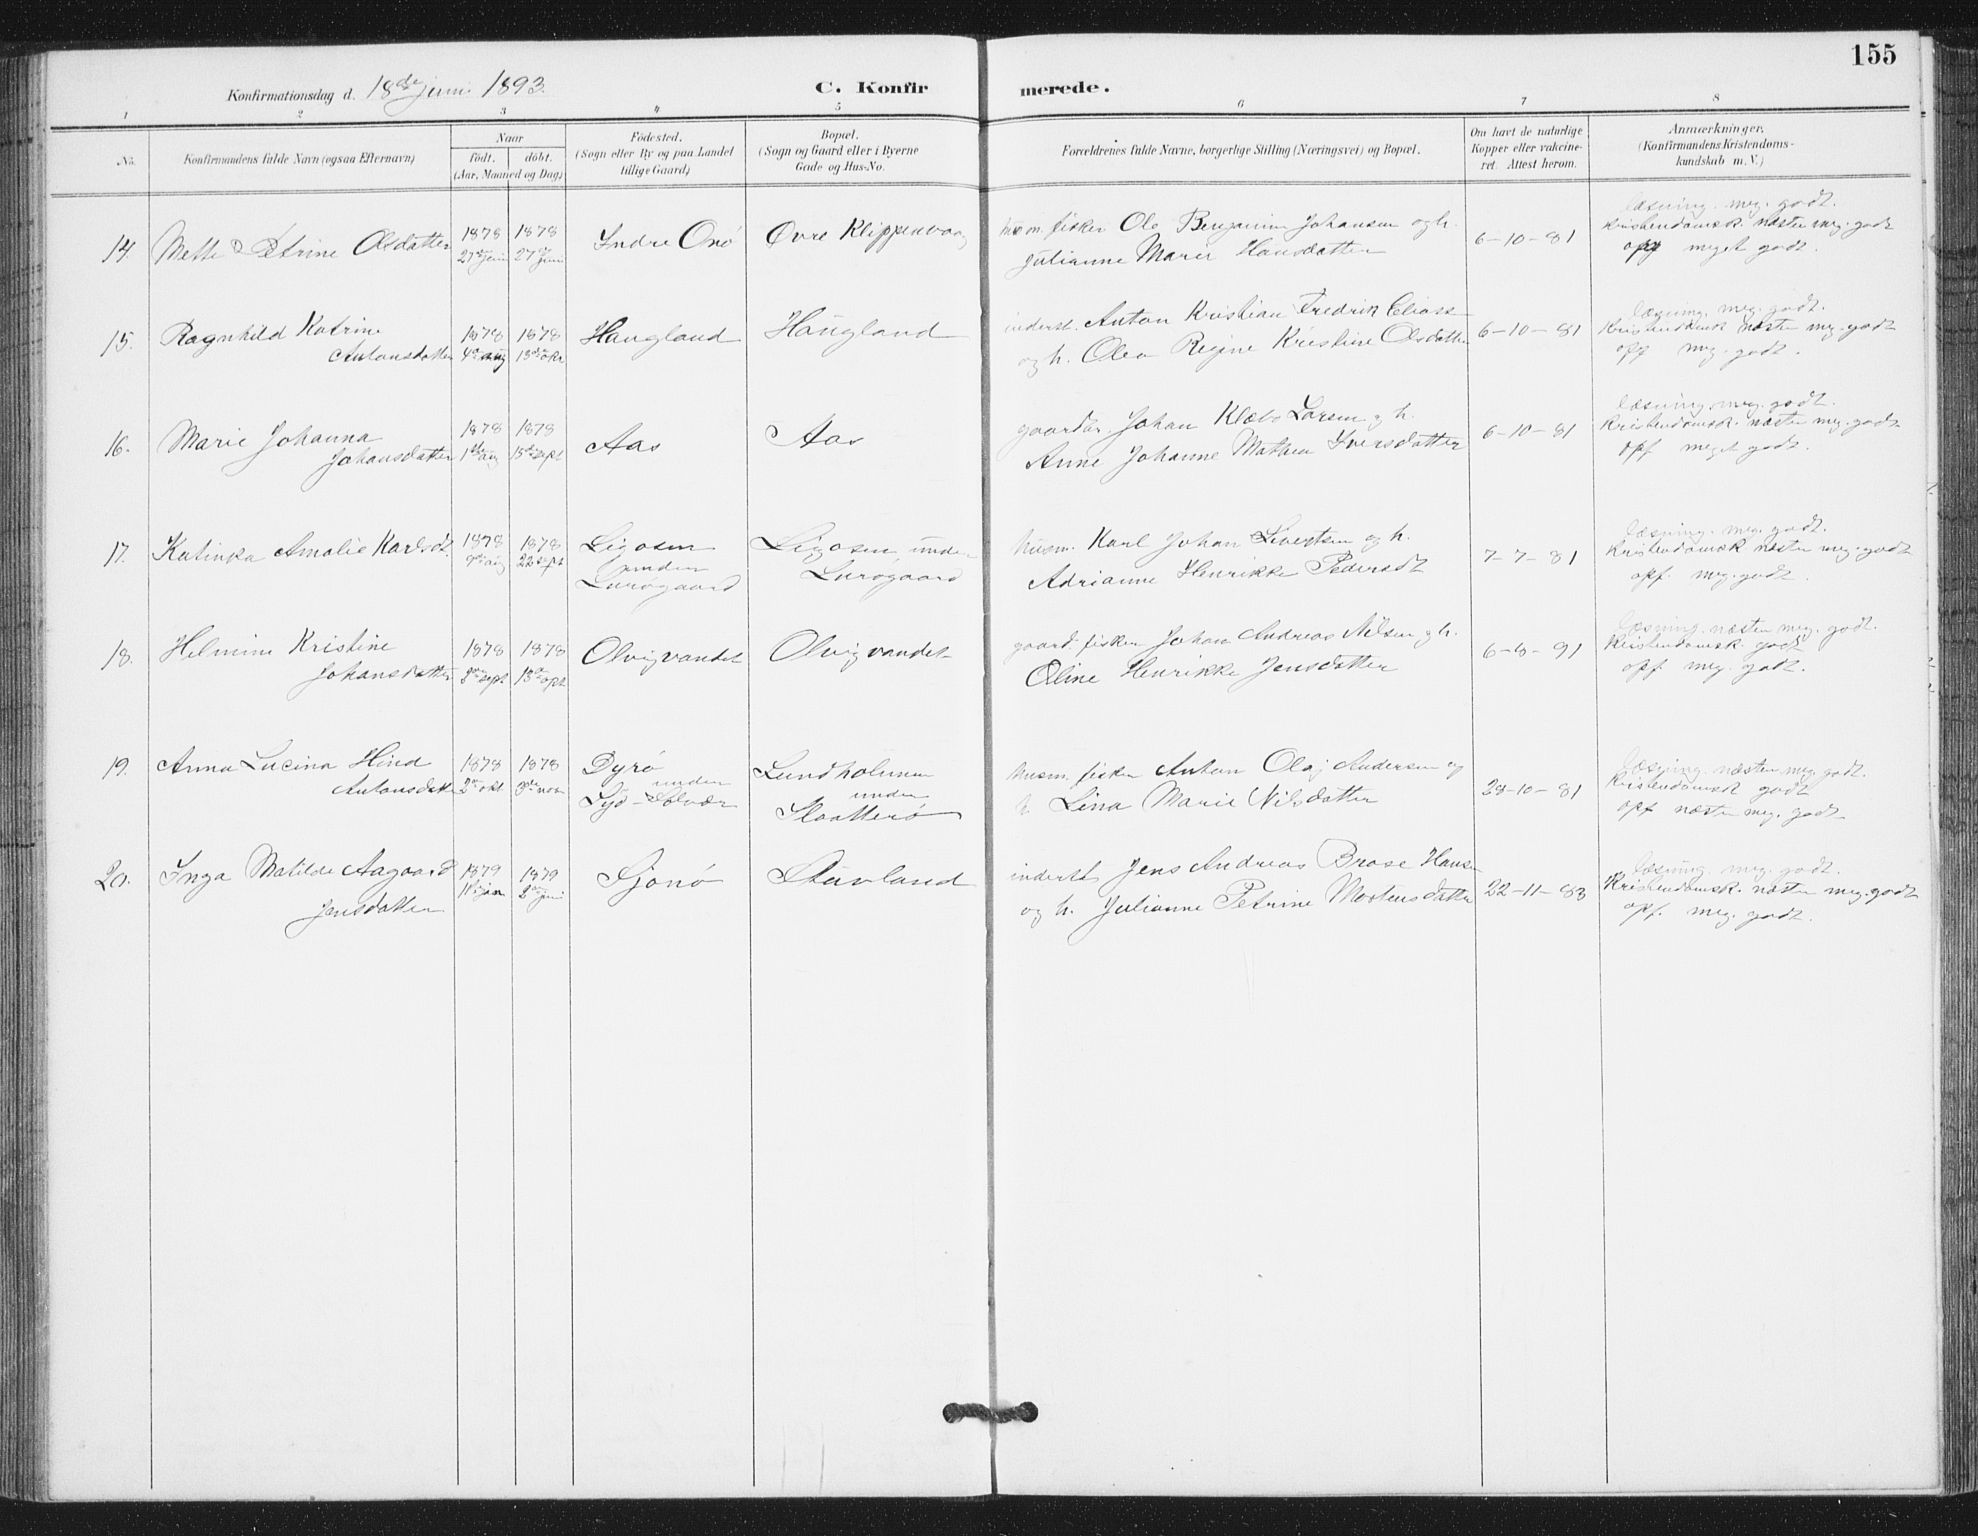 155
Konfirmationsdag d. 18de juni 1893.
C. Konfirmerede.
1 2 3 4 5 6 7 8
No.
Konfirmandens fulde Navn (ogsaa Efternavn)
Naar
födt. döbt.
(Aar, Maaned og Dag)
Födested.
(Sogn eller By og paa Landet
tillige Gaard)
Bopæl.
(Sogn og Gaard eller i Byerne
Gade og Hus-No.
Forældrenes fulde Navne, borgerlige Stilling (Næringsvei) og Bopæl.
Om havt de naturlige
Kopper eller vakcine-
ret. Attest herom.
Anmærkninger.
(Konfirmandens Kristendoms-
kundskab m. V.)
14. Mette Petrine Olsdatter
1878 27de juni
1878 27de juni
Indre Onö
Øvre Klippenvaag
fisker Ole Benjamin Johansen og h.
Julianne Maren Hansdatter
6-10-81
læsning. meg. godt.
kristendomsk. næsten meg. godt
opf meget godt.
15. Ragnhild Katrine
Antonsdatter
1878 4de aug
1878 13de okt
Haugland
Haugland
inderst. Anton Kristian Fredrik Eliass
og h. Olea Regine Kristine Olsdatter
6-10-81
læsning. meg. godt.
Kristendomsk næsten meg. godt
opf meg. godt.
16. Marie Johanna
Johansdatter
1878 1ste aug
1878 15de sept
Aas
Aas
gaardbr. Johan Klæbo Larsen og h.
Anne Johanne Mathea Iversdatter
6-10-81
læsning. meg. godt.
Kristendomsk. næsten meg. godt
opf meget godt.
17. Katinka Amalie Karlsdt
1878 9de aug
1878 22 sept
Ligosen
under
Lurøgaard
Ligosen under
Lurøgaard
husm. Karl Johan Sivertsen og h.
Adrianne Henrikke Pedersdt
7-7-81
læsning. meg. godt.
Kristendomsk næsten meg. godt
opf. meg. godt.
18. Helmine Kristine
Johansdatter
1878 8de sept
1878
Olvigvandet
Olvigvandet
gaard. fisker Johan Andreas Nilsen og h.
Oline Henrikke Jensdatter
6-8-91
læsning. næsten meg. godt.
Kristendomsk. godt
opf meg. godt.
19. Anna Lucina Hind
Antonsdatter
1878 2de okt
1878 3de nov
Dyrö
under
Syd-Solvær
Lundholmen
under
Slaatterø
husm. fisker Anton Olaj Andersen og
h. Lina Marie Nilsdatter
28-10-81
læsning. næsten meg. godt.
Kristendomsk godt
opf næsten meg. godt
20. Inga Matilde Aagaard
Jensdatter
1879 11te jan
1879 2de juni
Sjonö
Stuvland
inderst Jens Andreas Brose Hansen
og h. Julianne Petrine Mortensdatter
22-11-83
læsning. meg. godt.
Kristendomsk. næsten meg. godt
opf. meg. godt.